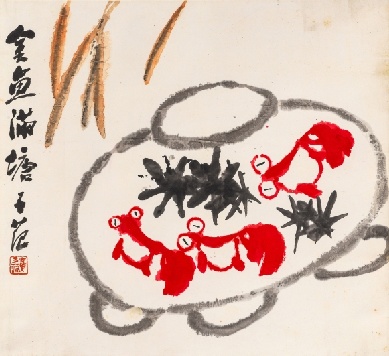 金魚滿塘子範